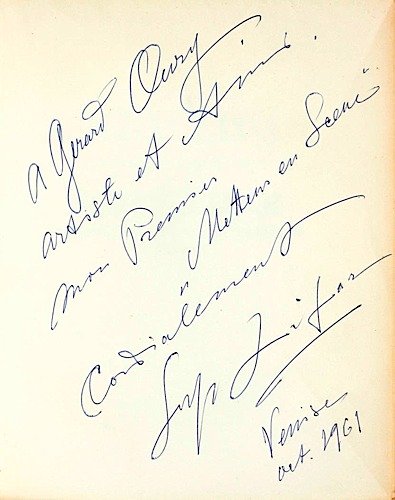 A Gerard Oury
artiste et Ami.
mon Premier
"Metteur en Scene"
Cordialement
Serge Lifar
Venise
oct. 1961